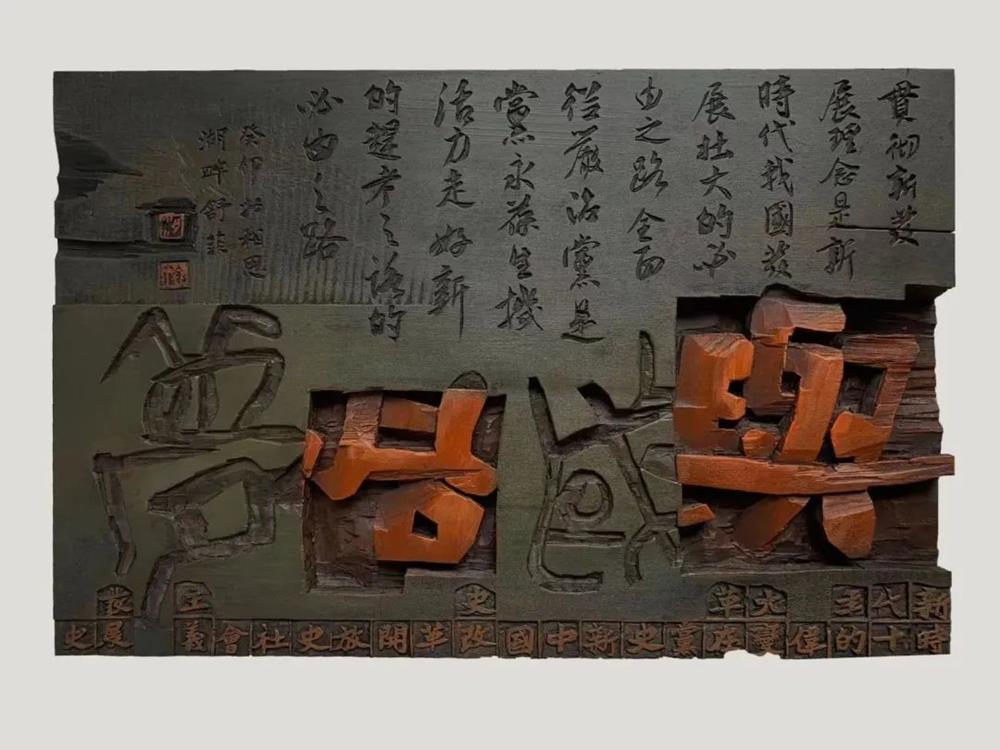 貫彻新發
展理念是新
時代我國發
展壮大的必
由之路全面
從嚴治黨是
黨永葆生機
活力走好新
的趕考之路的
必由之路
癸卯於相思
湖畔舒菲
興盛
新時代十年的偉大變革
黨史新中國史改革開放史社會主義發展史